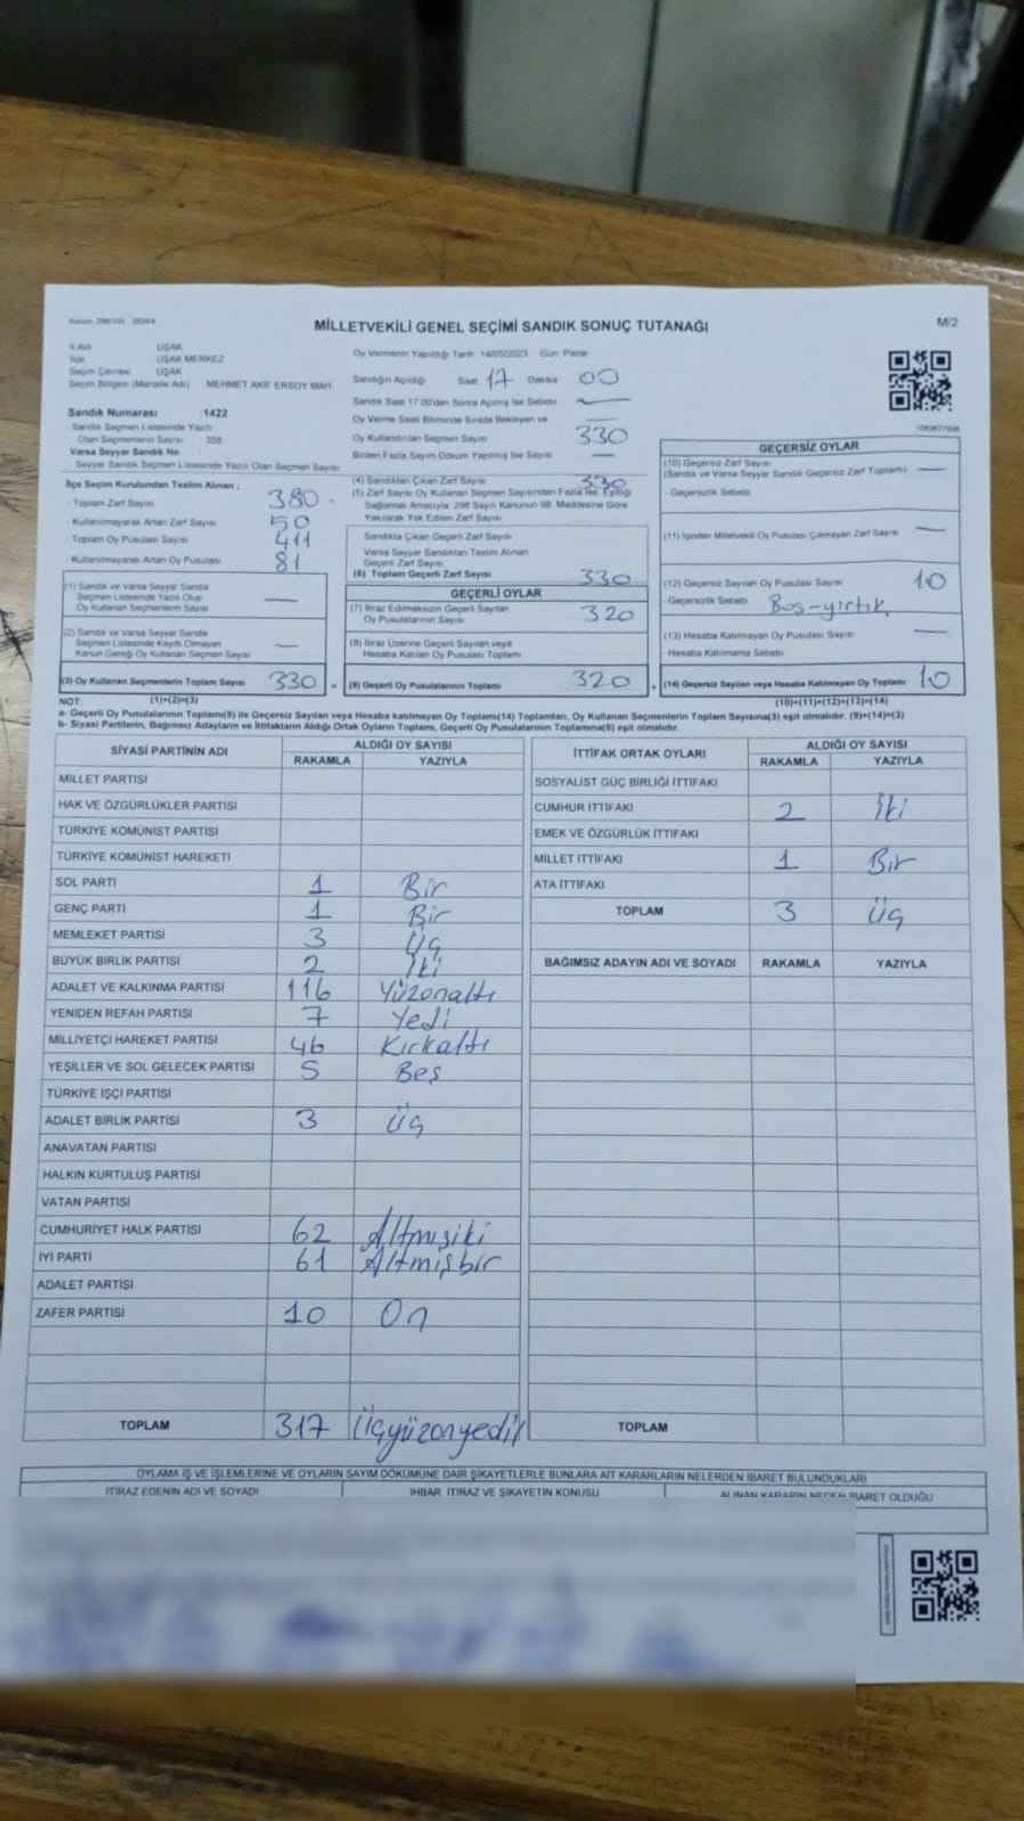 MİLLETVEKİLİ GENEL SEÇİMİ SANDIK SONUÇ TUTANAĞI
M/2
İli Adı UŞAK
İlçe UŞAK MERKEZ
Seçim Çevresi UŞAK
Seçim Bölgesi (Mahalle Adı) MEHMET AKİF ERSOY MAH.
Oy Vermenin Yapıldığı Tarih 14/05/2023 Gün Pazar
Sandığın Açıldığı Saat 17 Dakika 00
Sandık Saat 17.00'den Sonra Açılmış İse Sebebi —
Sandık Numarası 1422
Sandık Seçmen Listesinde Yazılı
Olan Seçmenlerin Sayısı
Varsa Seyyar Sandık No
Seyyar Sandık Seçmen Listesinde Yazılı Olan Seçmen Sayısı
Oy Verme Saati Bitiminde Sırada Bekleyen ve —
Oy Kullandırılan Seçmen Sayısı 330
Birden Fazla Sayım Döküm Yapılmış İse Sayısı —
İlçe Seçim Kurulundan Teslim Alınan :
Toplam Zarf Sayısı 380
Kullanılmayarak Artan Zarf Sayısı 50
Toplam Oy Pusulası Sayısı 411
Kullanılmayarak Artan Oy Pusulası 81
(1) Sandık ve Varsa Seyyar Sandık
Seçmen Listesinde Yazılı Olup
Oy Kullanan Seçmenlerin Sayısı —
(2) Sandık ve Varsa Seyyar Sandık
Seçmen Listesinde Kayıtlı Olmayan
Kanun Gereği Oy Kullanan Seçmen Sayısı —
(3) Oy Kullanan Seçmenlerin Toplam Sayısı 330
(1)+(2)=(3)
(4) Sandıktan Çıkan Zarf Sayısı 330
(5) Zarf Sayısı Oy Kullanan Seçmen Sayısından Fazla İse, Eşitliği
Sağlamak Amacıyla 298 Sayılı Kanunun 98. Maddesine Göre
Yakılarak Yok Edilen Zarf Sayısı
Sandıkta Çıkan Geçerli Zarf Sayısı
Varsa Seyyar Sandıktan Teslim Alınan
Geçerli Zarf Sayısı
(6) Toplam Geçerli Zarf Sayısı 330
GEÇERLİ OYLAR
(7) İtiraz Edilmeksizin Geçerli Sayılan
Oy Pusulalarının Sayısı 320
(8) İtiraz Üzerine Geçerli Sayılan veya
Hesaba Katılan Oy Pusulası Toplamı
(9) Geçerli Oy Pusulalarının Toplamı 320
GEÇERSİZ OYLAR
(10) Geçersiz Zarf Sayısı
(Sandık ve Varsa Seyyar Sandık Geçersiz Zarf Toplamı) —
Geçersizlik Sebebi
(11) İçinden Milletvekili Oy Pusulası Çıkmayan Zarf Sayısı —
(12) Geçersiz Sayılan Oy Pusulası Sayısı 10
Geçersizlik Sebebi Boş-yırtık
(13) Hesaba Katılmayan Oy Pusulası Sayısı —
Hesaba Katılmama Sebebi
(14) Geçersiz Sayılan veya Hesaba Katılmayan Oy Toplamı 10
(10)+(11)+(12)+(13)=(14)
NOT:
a- Geçerli Oy Pusulalarının Toplamı(9) ile Geçersiz Sayılan veya Hesaba katılmayan Oy Toplamı(14) Toplamları, Oy Kullanan Seçmenlerin Toplam Sayısına(3) eşit olmalıdır. (9)+(14)=(3)
b- Siyasi Partilerin, Bağımsız Adayların ve İttifakların Aldığı Ortak Oyların Toplamı, Geçerli Oy Pusulalarının Toplamına(9) eşit olmalıdır.
SİYASİ PARTİNİN ADI ALDIĞI OY SAYISI
RAKAMLA YAZIYLA
MİLLET PARTİSİ
HAK VE ÖZGÜRLÜKLER PARTİSİ
TÜRKİYE KOMÜNİST PARTİSİ
TÜRKİYE KOMÜNİST HAREKETİ
SOL PARTİ 1 Bir
GENÇ PARTİ 1 Bir
MEMLEKET PARTİSİ 3 Üç
BÜYÜK BİRLİK PARTİSİ 2 İki
ADALET VE KALKINMA PARTİSİ 116 Yüzonaltı
YENİDEN REFAH PARTİSİ 7 Yedi
MİLLİYETÇİ HAREKET PARTİSİ 46 Kırkaltı
YEŞİLLER VE SOL GELECEK PARTİSİ 5 Beş
TÜRKİYE İŞÇİ PARTİSİ
ADALET BİRLİK PARTİSİ 3 Üç
ANAVATAN PARTİSİ
HALKIN KURTULUŞ PARTİSİ
VATAN PARTİSİ
CUMHURİYET HALK PARTİSİ 62 Altmışiki
İYİ PARTİ 61 Altmışbir
ADALET PARTİSİ
ZAFER PARTİSİ 10 On
TOPLAM 317 Üçyüzonyedi
İTTİFAK ORTAK OYLARI ALDIĞI OY SAYISI
RAKAMLA YAZIYLA
SOSYALİST GÜÇ BİRLİĞİ İTTİFAKI
CUMHUR İTTİFAKI 2 İki
EMEK VE ÖZGÜRLÜK İTTİFAKI
MİLLET İTTİFAKI 1 Bir
ATA İTTİFAKI
TOPLAM 3 Üç
BAĞIMSIZ ADAYIN ADI VE SOYADI RAKAMLA YAZIYLA
TOPLAM
OYLAMA İŞ VE İŞLEMLERİNE VE OYLARIN SAYIM DÖKÜMÜNE DAİR ŞİKAYETLERLE BUNLARA AİT KARARLARIN NELERDEN İBARET BULUNDUKLARI
İTİRAZ EDENİN ADI VE SOYADI İHBAR İTİRAZ VE ŞİKAYETİN KONUSU ALINAN KARARIN NEDEN İBARET OLDUĞU